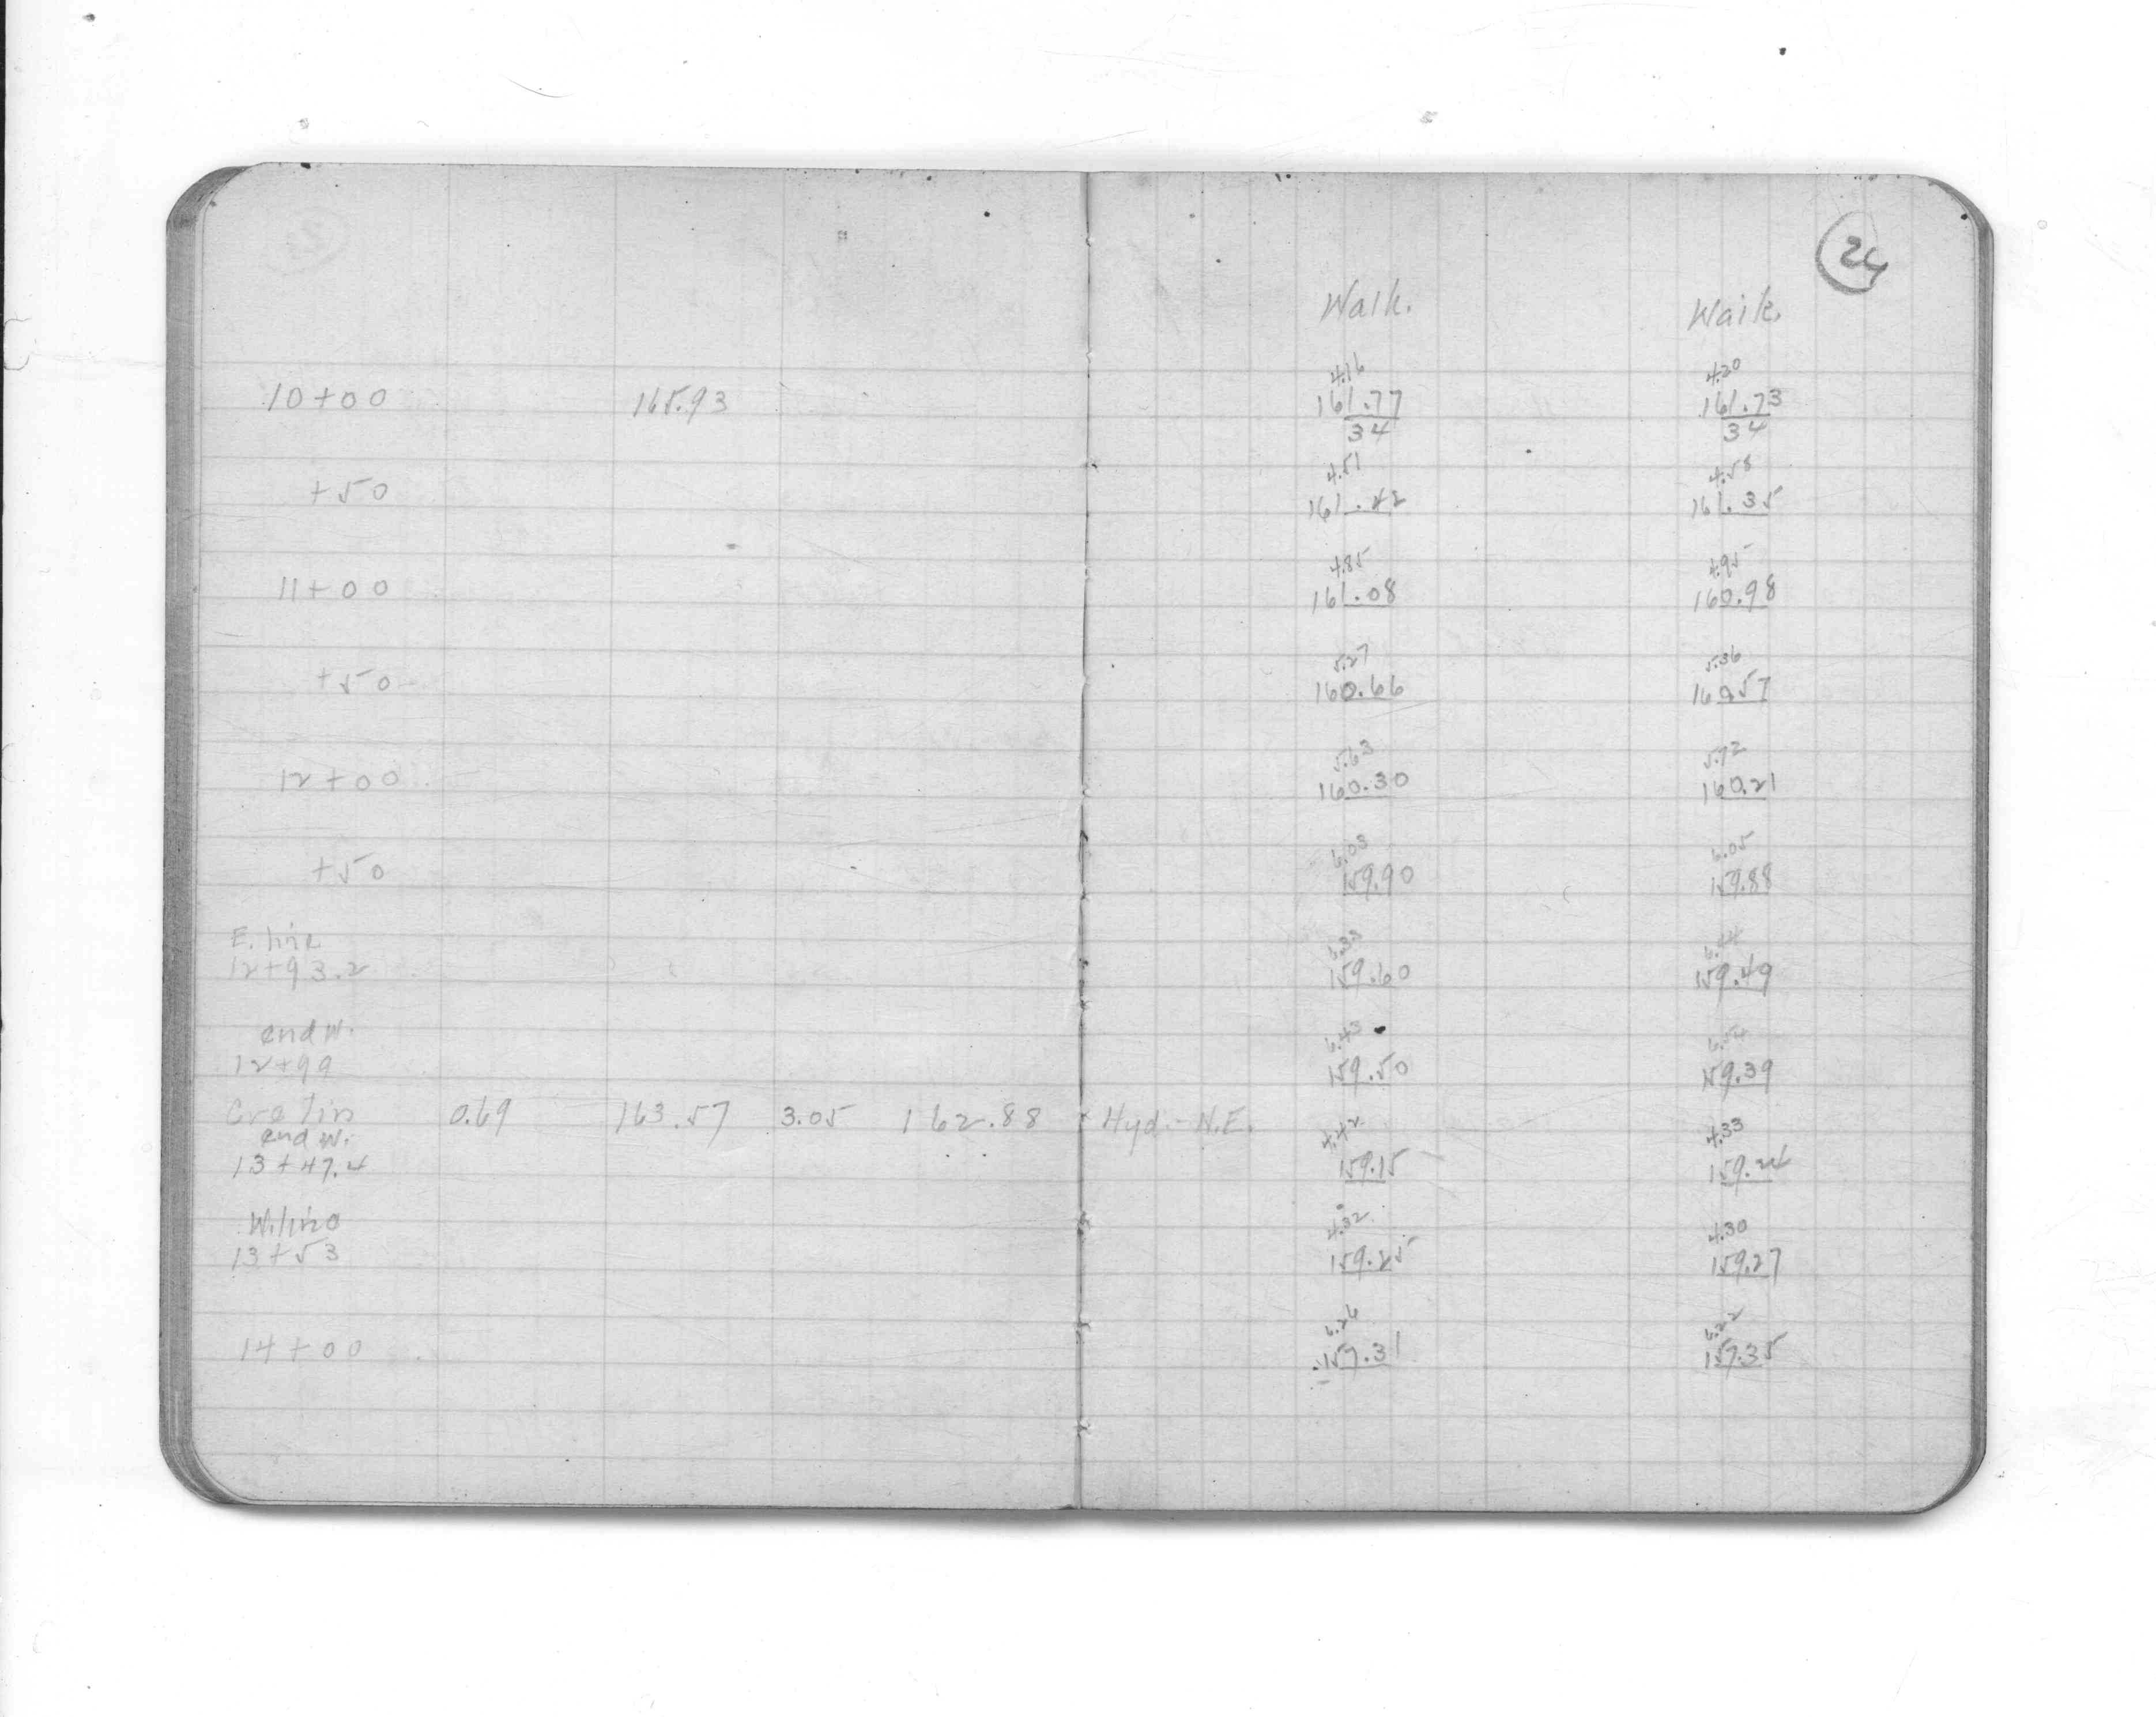 24
Walk. Walk.
4.16 4.20
10+00 165.93 161.77 161.73
34 34
4.51 4.58
+50 161.42 161.35
4.85 4.95
11+00 161.08 160.98
5.27 5.36
+50 160.66 160.57
5.63 5.72
12+00 160.30 160.21
6.03 6.05
+50 159.90 159.88
E. line 6.33 6.44
12+93.2 159.60 159.49
end W. 6.43 6.54
12+99 159.50 159.39
0.69 163.57 3.05 162.88 Hyd. - N.E.
end W. 4.42 4.33
13+47.4 159.15 159.24
W. line 4.32 4.30
13+53 159.25 159.27
6.26 6.22
14+00 157.31 157.35